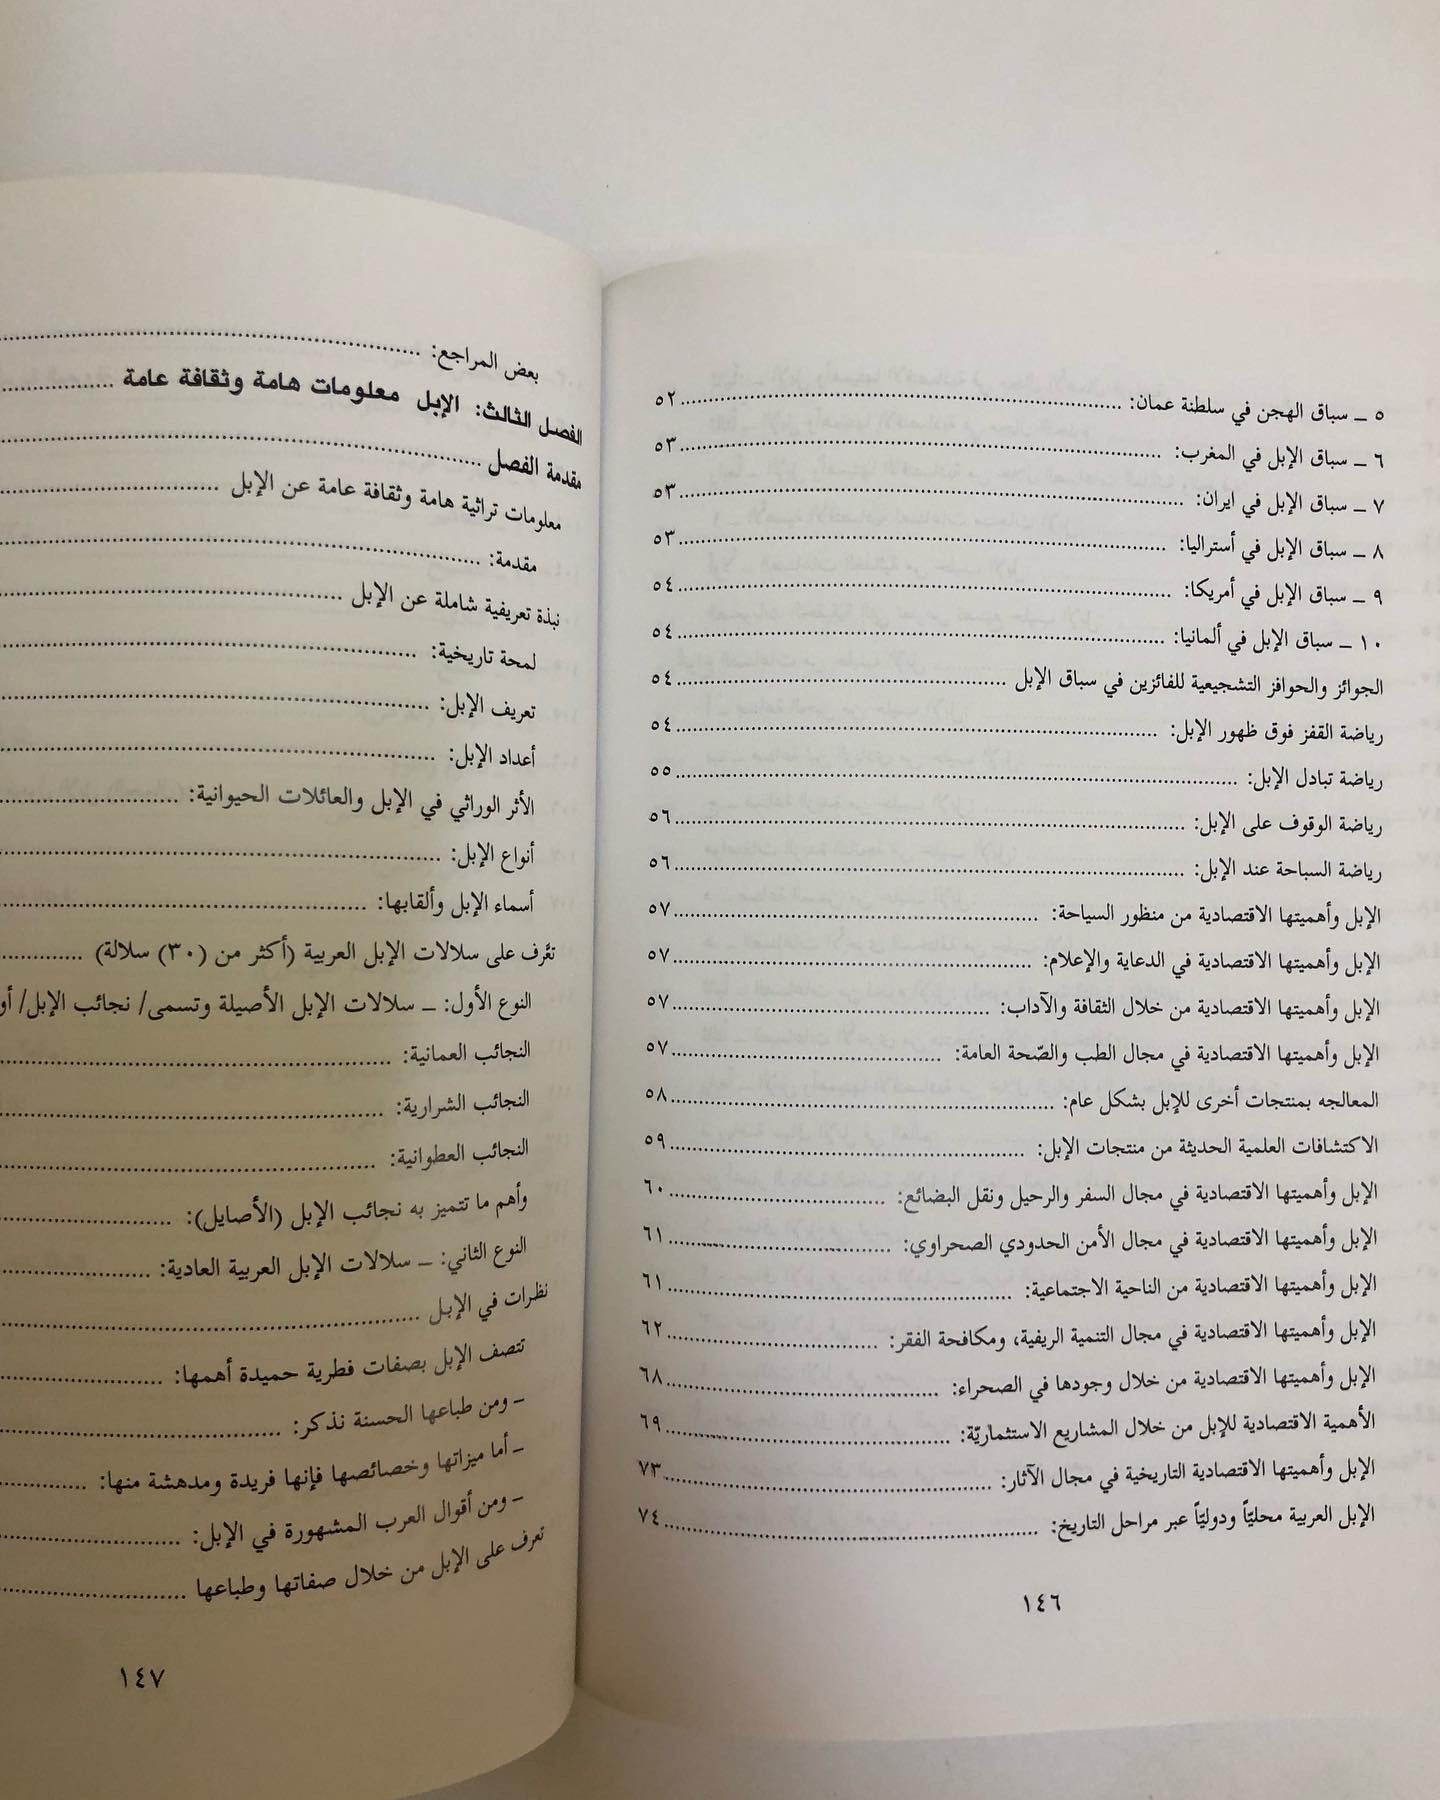 ٥ ــ سباق الهجن في سلطنة عمان: ........ ٥٢
٦ ــ سباق الإبل في المغرب: ........ ٥٣
٧ ــ سباق الإبل في ايران: ........ ٥٣
٨ ــ سباق الإبل في أستراليا: ........ ٥٣
٩ ــ سباق الإبل في أمريكا: ........ ٥٤
١٠ ــ سباق الإبل في ألمانيا: ........ ٥٤
الجوائز والحوافز التشجيعية للفائزين في سباق الإبل ........ ٥٤
رياضة القفز فوق ظهور الإبل: ........ ٥٤
رياضة تبادل الإبل: ........ ٥٥
رياضة الوقوف على الإبل: ........ ٥٦
رياضة السباحة عند الإبل: ........ ٥٦
الإبل وأهميتها الاقتصادية من منظور السياحة: ........ ٥٧
الإبل وأهميتها الاقتصادية في الدعاية والإعلام: ........ ٥٧
الإبل وأهميتها الاقتصادية من خلال الثقافة والآداب: ........ ٥٧
الإبل وأهميتها الاقتصادية في مجال الطب والصّحة العامة: ........ ٥٧
المعالجه بمنتجات أخرى للإبل بشكل عام: ........ ٥٨
الاكتشافات العلمية الحديثة من منتجات الإبل: ........ ٥٩
الإبل وأهميتها الاقتصادية في مجال السفر والرحيل ونقل البضائع: ........ ٦٠
الإبل وأهميتها الاقتصادية في مجال الأمن الحدودي الصحراوي: ........ ٦١
الإبل وأهميتها الاقتصادية من الناحية الاجتماعية: ........ ٦١
الإبل وأهميتها الاقتصادية في مجال التنمية الريفية، ومكافحة الفقر: ........ ٦٢
الإبل وأهميتها الاقتصادية من خلال وجودها في الصحراء: ........ ٦٨
الأهمية الاقتصادية للإبل من خلال المشاريع الاستثماريّة: ........ ٦٩
الإبل وأهميتها الاقتصادية التاريخية في مجال الآثار: ........ ٧٣
الإبل العربية محليّاً ودوليّاً عبر مراحل التاريخ: ........ ٧٤
١٤٦
بعض المراجع: ........
الفصل الثالث: الإبل معلومات هامة وثقافة عامة ........
مقدمة الفصل ........
معلومات تراثية هامة وثقافة عامة عن الإبل ........
مقدمة: ........
نبذة تعريفية شاملة عن الإبل ........
لمحة تاريخية: ........
تعريف الإبل: ........
أعداد الإبل: ........
الأثر الوراثي في الإبل والعائلات الحيوانية: ........
أنواع الإبل: ........
أسماء الإبل وألقابها: ........
تعَّرف على سلالات الإبل العربية (أكثر من (٣٠) سلالة) ........
النوع الأول: ــ سلالات الإبل الأصيلة وتسمى/ نجائب الإبل/ أو
النجائب العمانية: ........
النجائب الشرارية: ........
النجائب العطوانية: ........
وأهم ما تتميز به نجائب الإبل (الأصايل): ........
النوع الثاني: ــ سلالات الإبل العربية العادية: ........
نظرات في الإبـل ........
تتصف الإبل بصفات فطرية حميدة أهمها: ........
– ومن طباعها الحسنة نذكر: ........
– أما ميزاتها وخصائصها فإنها فريدة ومدهشة منها: ........
– ومن أقوال العرب المشهورة في الإبل: ........
تعرف على الإبل من خلال صفاتها وطباعها ........
١٤٧